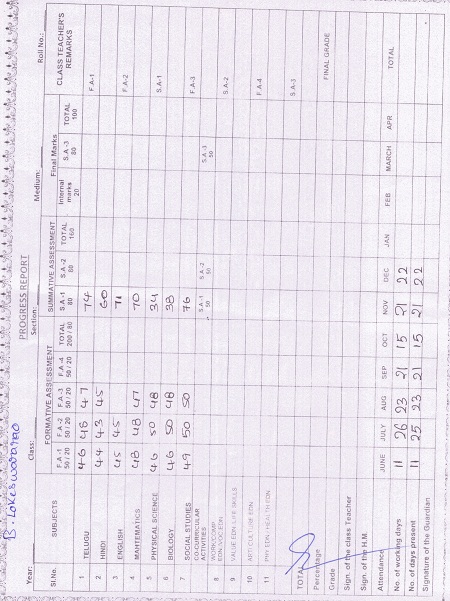 B. Lokeswararao
PROGRESS REPORT
Year: Class: Section: Medium: Roll No.:
Sl.No. SUBJECTS FORMATIVE ASSESSMENT SUMMATIVE ASSESSMENT Final Marks CLASS TEACHER'S REMARKS
F.A-1 50/20 F.A-2 50/20 F.A-3 50/20 F.A-4 50/20 TOTAL 200/80 S.A-1 80 S.A-2 80 TOTAL 160 Internal marks 20 S.A-3 80 TOTAL 100
1 TELUGU 46 48 47 74 F.A-1
2 HINDI 44 43 45 60
3 ENGLISH 45 45 71 F.A-2
4 MAHTEMATICS 48 48 47 70
5 PHYSICAL SCIENCE 46 50 48 34 S.A-1
6 BIOLOGY 46 50 48 38
7 SOCIAL STUDIES 49 50 50 76 F.A-3
CO-CURRICULAR ACTIVITIES S.A-1 50 S.A-2 50 S.A-3 50
8 WORK/COMP. EDN/VOC EDN S.A-2
9 VALUE EDN LIFE SKILLS
10 ART/CULTURE EDN F.A-4
11 PHY EDN/HEALTH EDN
TOTAL S.A-3
Percentage
Grade FINAL GRADE
Sign. of the class Teacher
Sign. of the H.M.
Attendance JUNE JULY AUG SEP OCT NOV DEC JAN FEB MARCH APR TOTAL
No. of working days 11 26 23 21 15 21 22
No. of days present 11 25 23 21 15 21 22
Signature of the Guardian